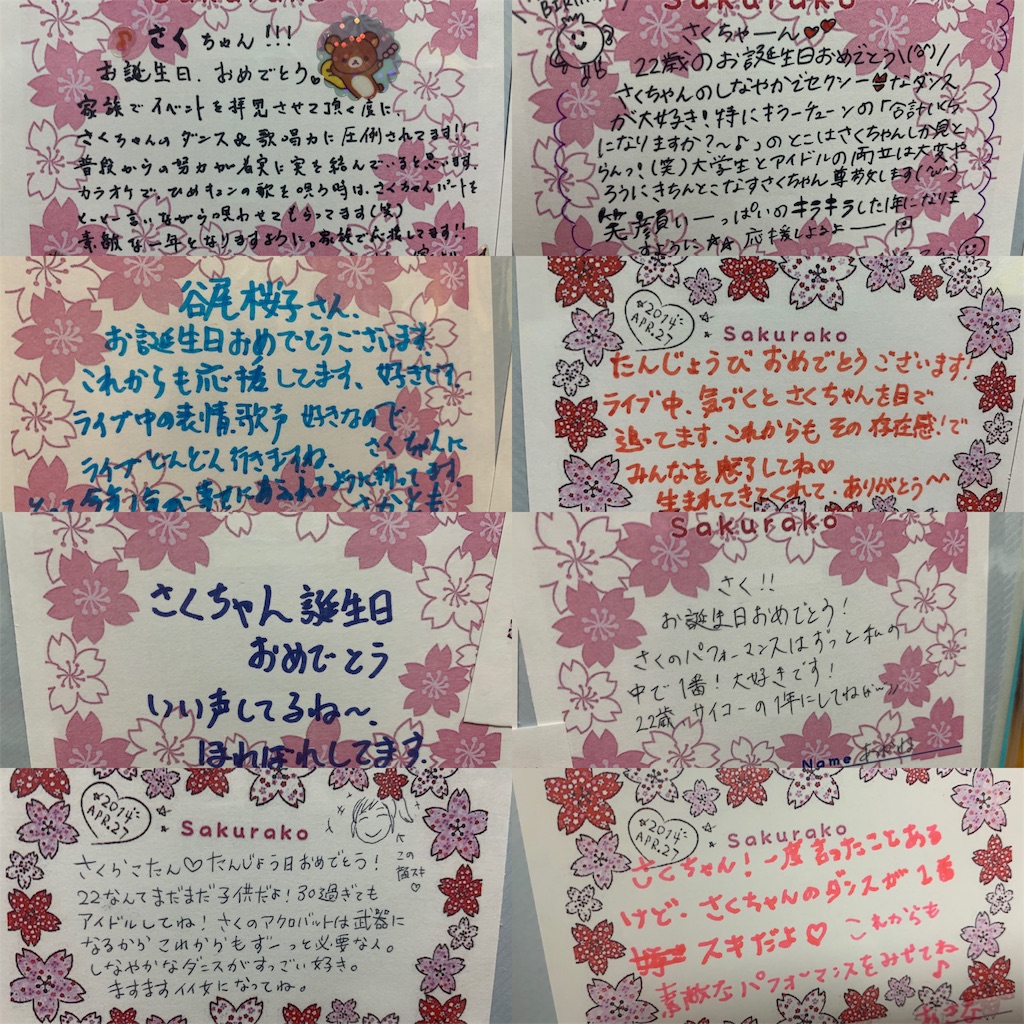 Sakurako
さくちゃん!!!
お誕生日、おめでとう。
家族でイベントを拝見させて頂く度に、
さくちゃんのダンス&歌唱力に圧倒されてます!!
普段からの努力が着実に実を結んでいると思います。
カラオケで、ひめキュンの歌を唄う時は、さくちゃんパートを
とーとー言いながら唄わせてもらってます(笑)
素敵な一年となりますように。家族で応援してます!!
Sakurako
さくちゃーん♥♥
22歳のお誕生日おめでとう\(^^)/
さくちゃんのしなやかでセクシー♥なダンス
が大好き!特にキラーチューンの「合計いくら
になりますか?〜♪」のとこはさくちゃんしか見と
らんっ!(笑)大学生とアイドルの両立は大変や
ろうにきちんとこなすさくちゃん尊敬します(^ω^)
笑顔いーっぱいのキラキラした1年になりま
すように☆★ 応援しよるよー
谷尾桜子さん、
お誕生日おめでとうございます。
これからも応援してます、好きです。
ライブ中の表情、歌声 好きなので
ライブどんどん行きますね。 さくちゃんに
とって今年1年が幸せにあふれるように祈ってます。
さかとも
☆2014☆
APR.27
Sakurako
たんじょうび おめでとうございます!
ライブ中、気づくとさくちゃんを目で
追ってます。これからもその存在感!で
みんなを魅了してね♡
生まれてきてくれて、ありがとう〜〜
さくちゃん誕生日
おめでとう
いい声してるね〜、
ほれぼれしてます。
Sakurako
さく!!
お誕生日おめでとう!
さくのパフォーマンスはずっと私の
中で1番!大好きです!
22歳、サイコーの1年にしてね
Name あかね
☆2014☆
APR.27
Sakurako
さくらこたん♡たんじょう日おめでとう!
この
髪スキ
♡
22なんてまだまだ子供だよ!30過ぎても
アイドルしてね!さくのアクロバットは武器に
なるから これからもずーっと必要な人。
しなやかなダンスがすっごい好き。
ますますイイ女になってね。
☆2014☆
APR.27
Sakurako
さくちゃん!一度言ったことある
けど、さくちゃんのダンスが1番
スキだよ♡ これからも
素敵なパフォーマンスをみせてね♪